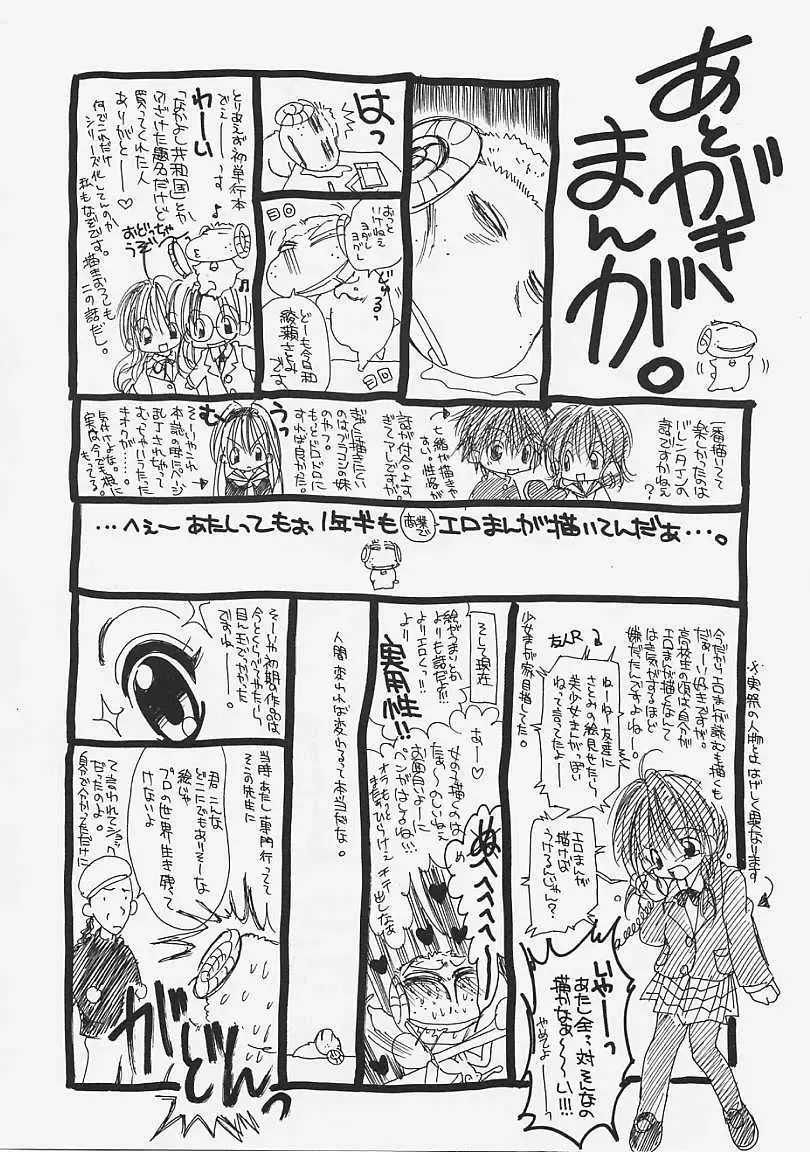 あとがき
まんが。
はっ
おっと
いけねえ
ヨダレ
ヨダレ
どーも今日和
綾瀬さとみ
です
とりあえず初単行本
でぇーーーす
わーい
「なかよし共和国」とか
ふざけた題名だけど
買ってくれた人
ありがとー♡
何でこれだけ
シリーズ化してんのか
私もなぞです。描きおろしても
この話だし。
一番描いてて
楽しかったのは
バレンタインの
話ですかねぇ
?
七緒が描きや
すい。性格が
ぎゃくに描きたい
のはブラコンの妹
のやつ。
もっとドロドロに
すれば良かった。
うっ
む
…へぇーあたしってもぉ1年半も
商業で
エロまんが描いてんだぁ…。
※実際の人物とははげしく異なります
今だからエロまんが読むも描くも
だぁーい好きですが。
高校生の頃は自分が
エロまんが描くなんて
はき気がするほど
嫌だったんですよねー。
少女まんが家目指してた。
友人R
ねーねー友達に
さとみの絵見せたら
美少女まんがっぽい
ねって言ってたよー
エロまんが
描けば
うけるんじゃん?
いやーーっ
あたし絶対そんなの
描かなぁ〜〜〜い!!!
やめてよーーー
そして現在
絵がうまいね
よりも話だぜ!
よりエロくっ!!
より
実用性!!
あー♡
女の子描くのは
たぁ〜のしいねぇ
お肉買いよーに
ペンがはしるね!!
オラもっとひらけぇ
汁出しなぁ
ぬへへへへー
人間変われば変わるって本当だな。
そーいや初期の作品は
今とくらべてみたら
目ん玉でかかった
ですねー。
当時あたし専門行ってて
そこの先生に
君こんな
どこにでもありそーな
絵じゃ
プロの世界生き残って
けないよ
って言われてショック
だったのよ。
自分で分かってただけに
がどんっ